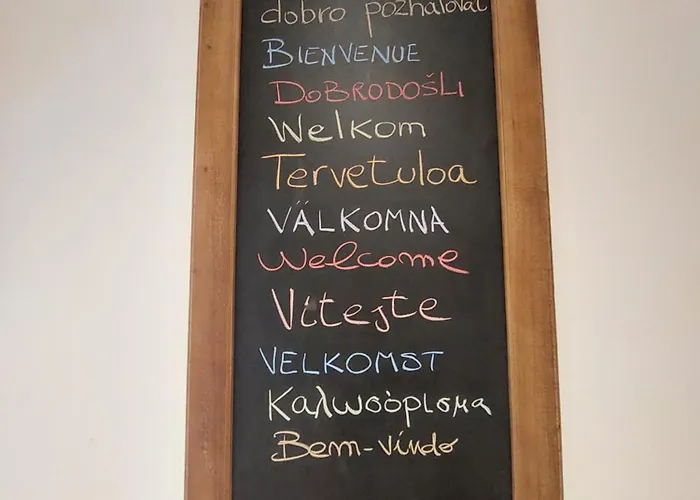 dobro pozhaloval
BIENVENUE
DOBRODOŠLI
Welkom
Tervetuloa
VÄLKOMNA
Welcome
Vítejte
VELKOMST
Καλωσόρισμα
Bem-vindo